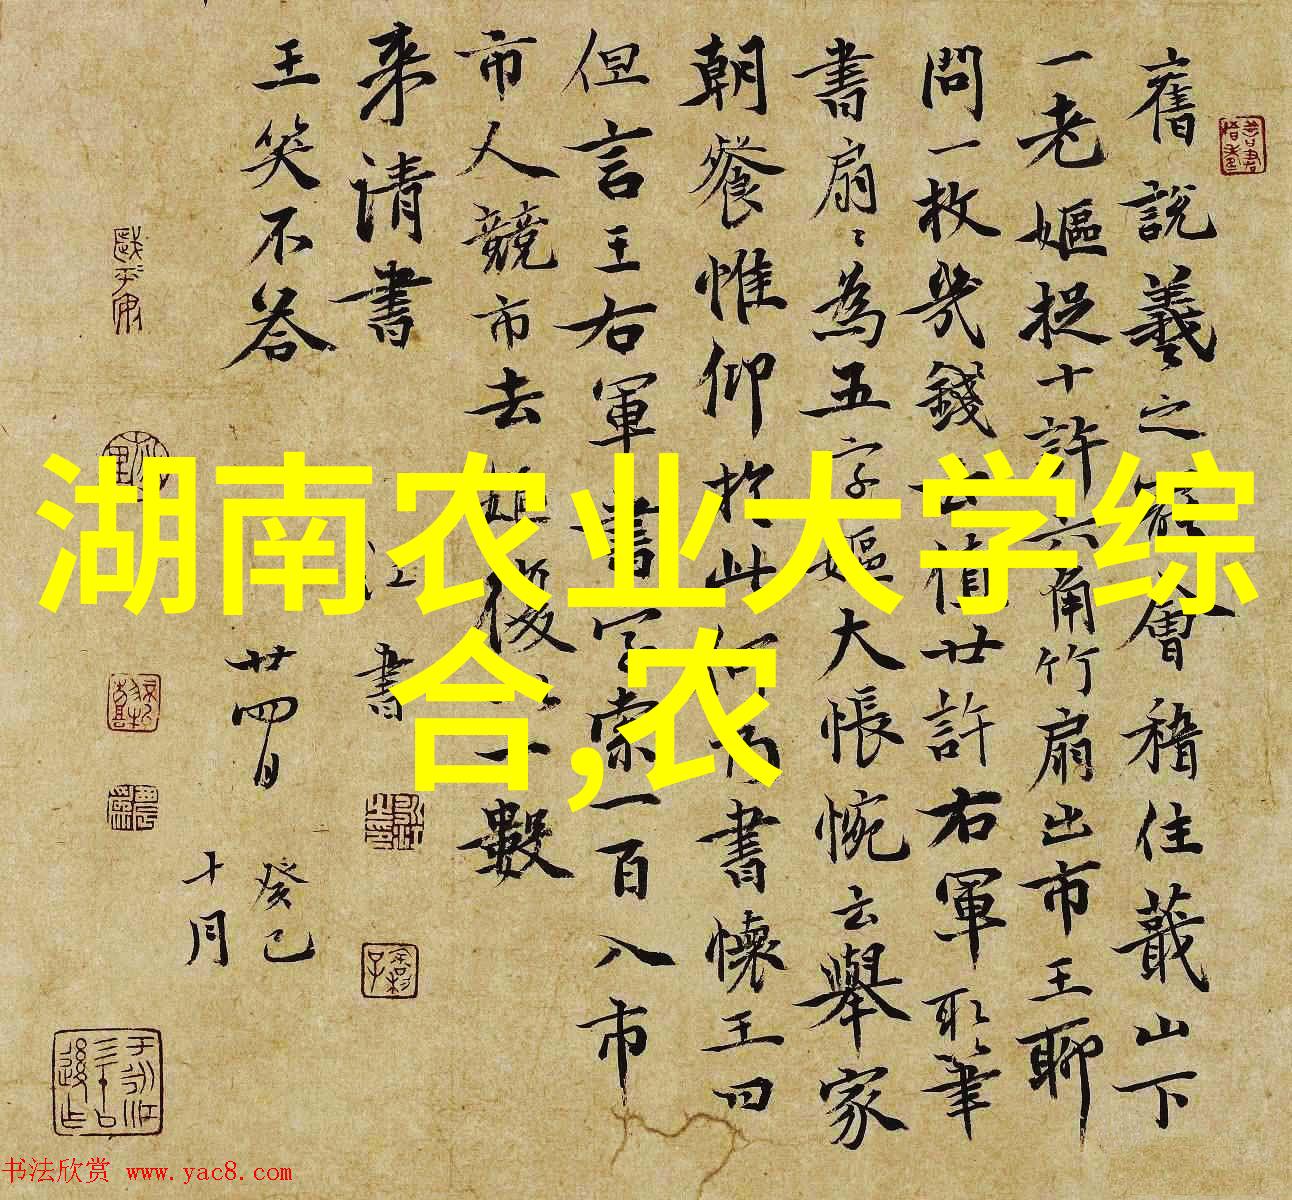 舊說羲之罷會稽住蕺山下
一老嫗捉十許六角竹扇出市王聊
問一枚幾錢云值廿許右軍取筆
書扇扇為五字嫗大悵惋云舉家
朝餐惟仰於此何乃書壞王曰
但言王右軍書字索一百入市
市人競市去姥復以十數
来请書
王笑不答
江書
廿四日
癸巳
十月
湖南农业大学综
合,农
书法欣赏 www.yac8.com